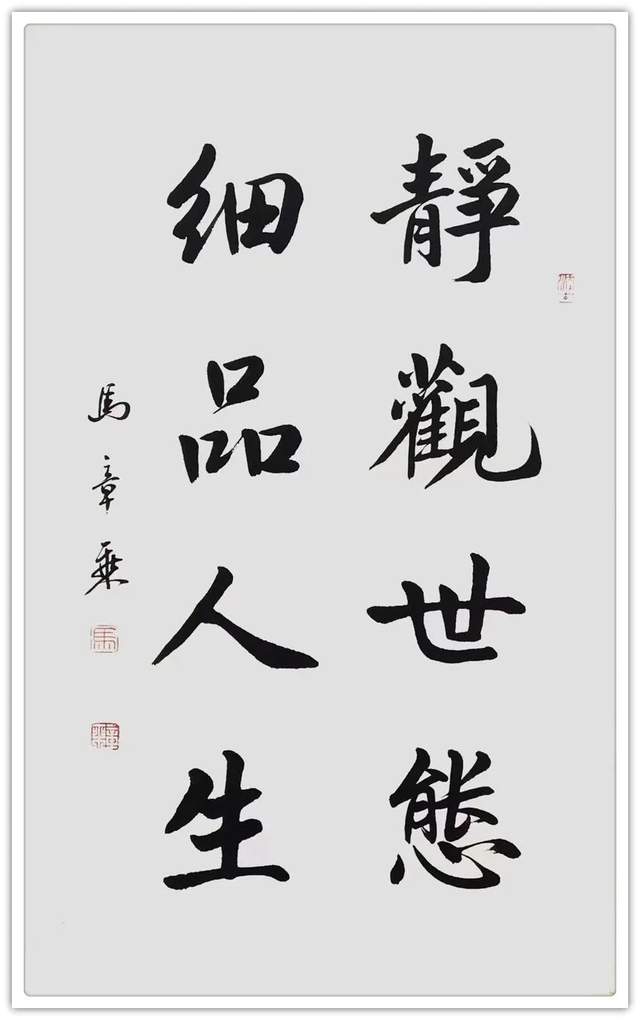 靜觀世態
細品人生
馬章乘